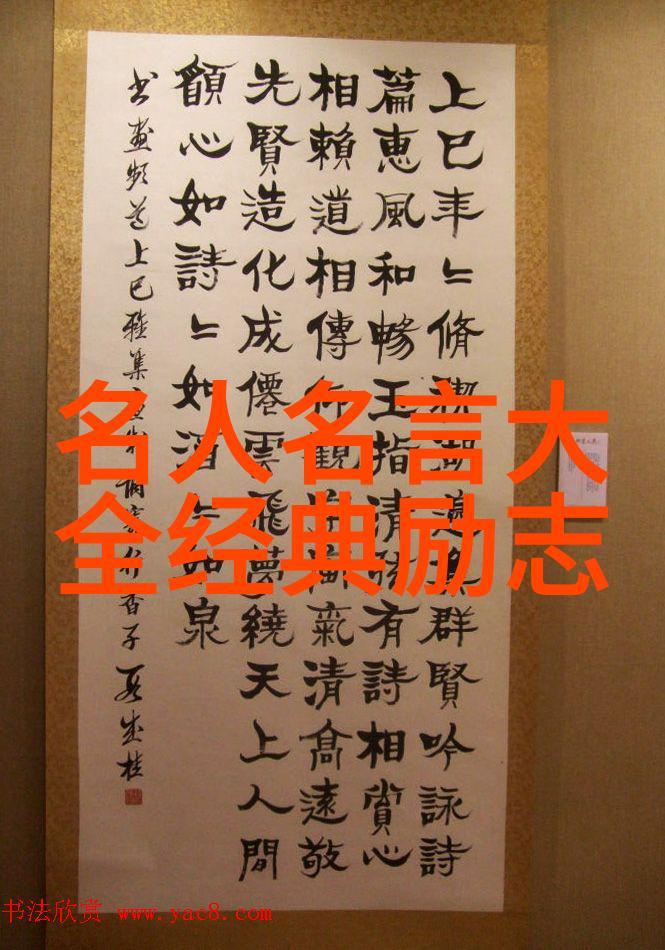 上巳年〻脩禊湖邊群賢吟詠詩
篇惠風和暢玉指清有詩相賞心
相賴道相傳仰觀氣清高遠敬
先賢造化成僊雲飛夢繞天上人間
願心如詩〻如酒〻如泉
书畫频道上巳雅集行香子
名人名言大
全经典励志
书法欣赏 www.yac8.com